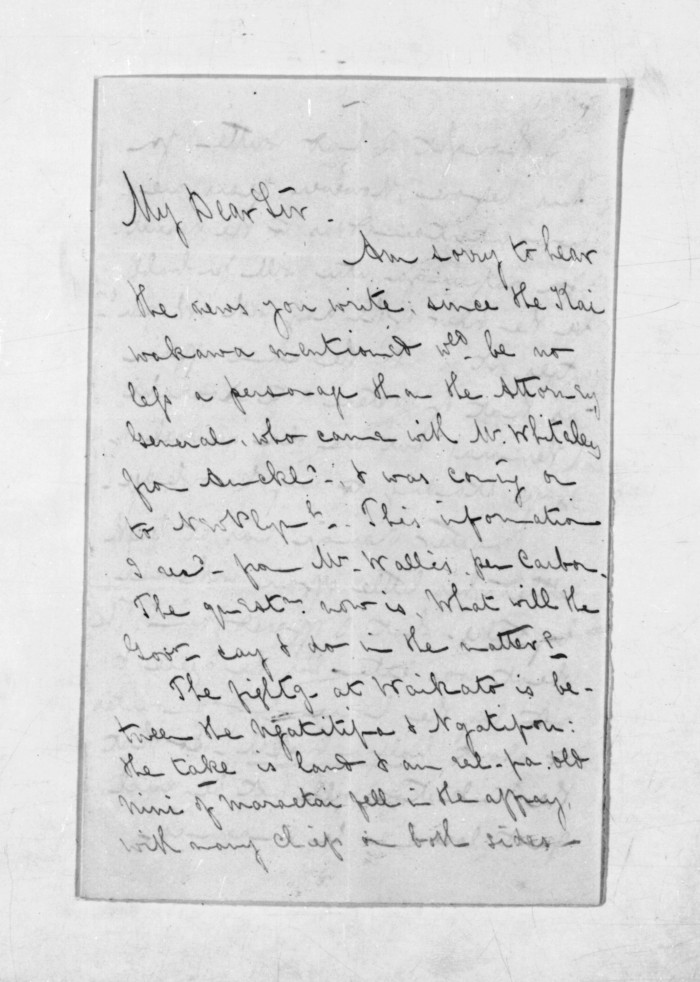 My Dear Sir.
Am sorry to hear
the news you write: since the Kai
wakawa mentioned wd. be no
less a personage than the Attorney
General, who came with Mr. Whiteley
from Auckld-, & was coming on
to NewPlyth-. This information
I recd- from Mr. Wallis per Carbon.
The questn. now is, What will the
Govr- say & do in the matter?
The fightg- at Waikato is be-
tween the Ngatitipa & Ngatipou:
the take is land & an eel-pa. old
Nini of Maraetai fell in the affray,
with many chiefs on both sides-